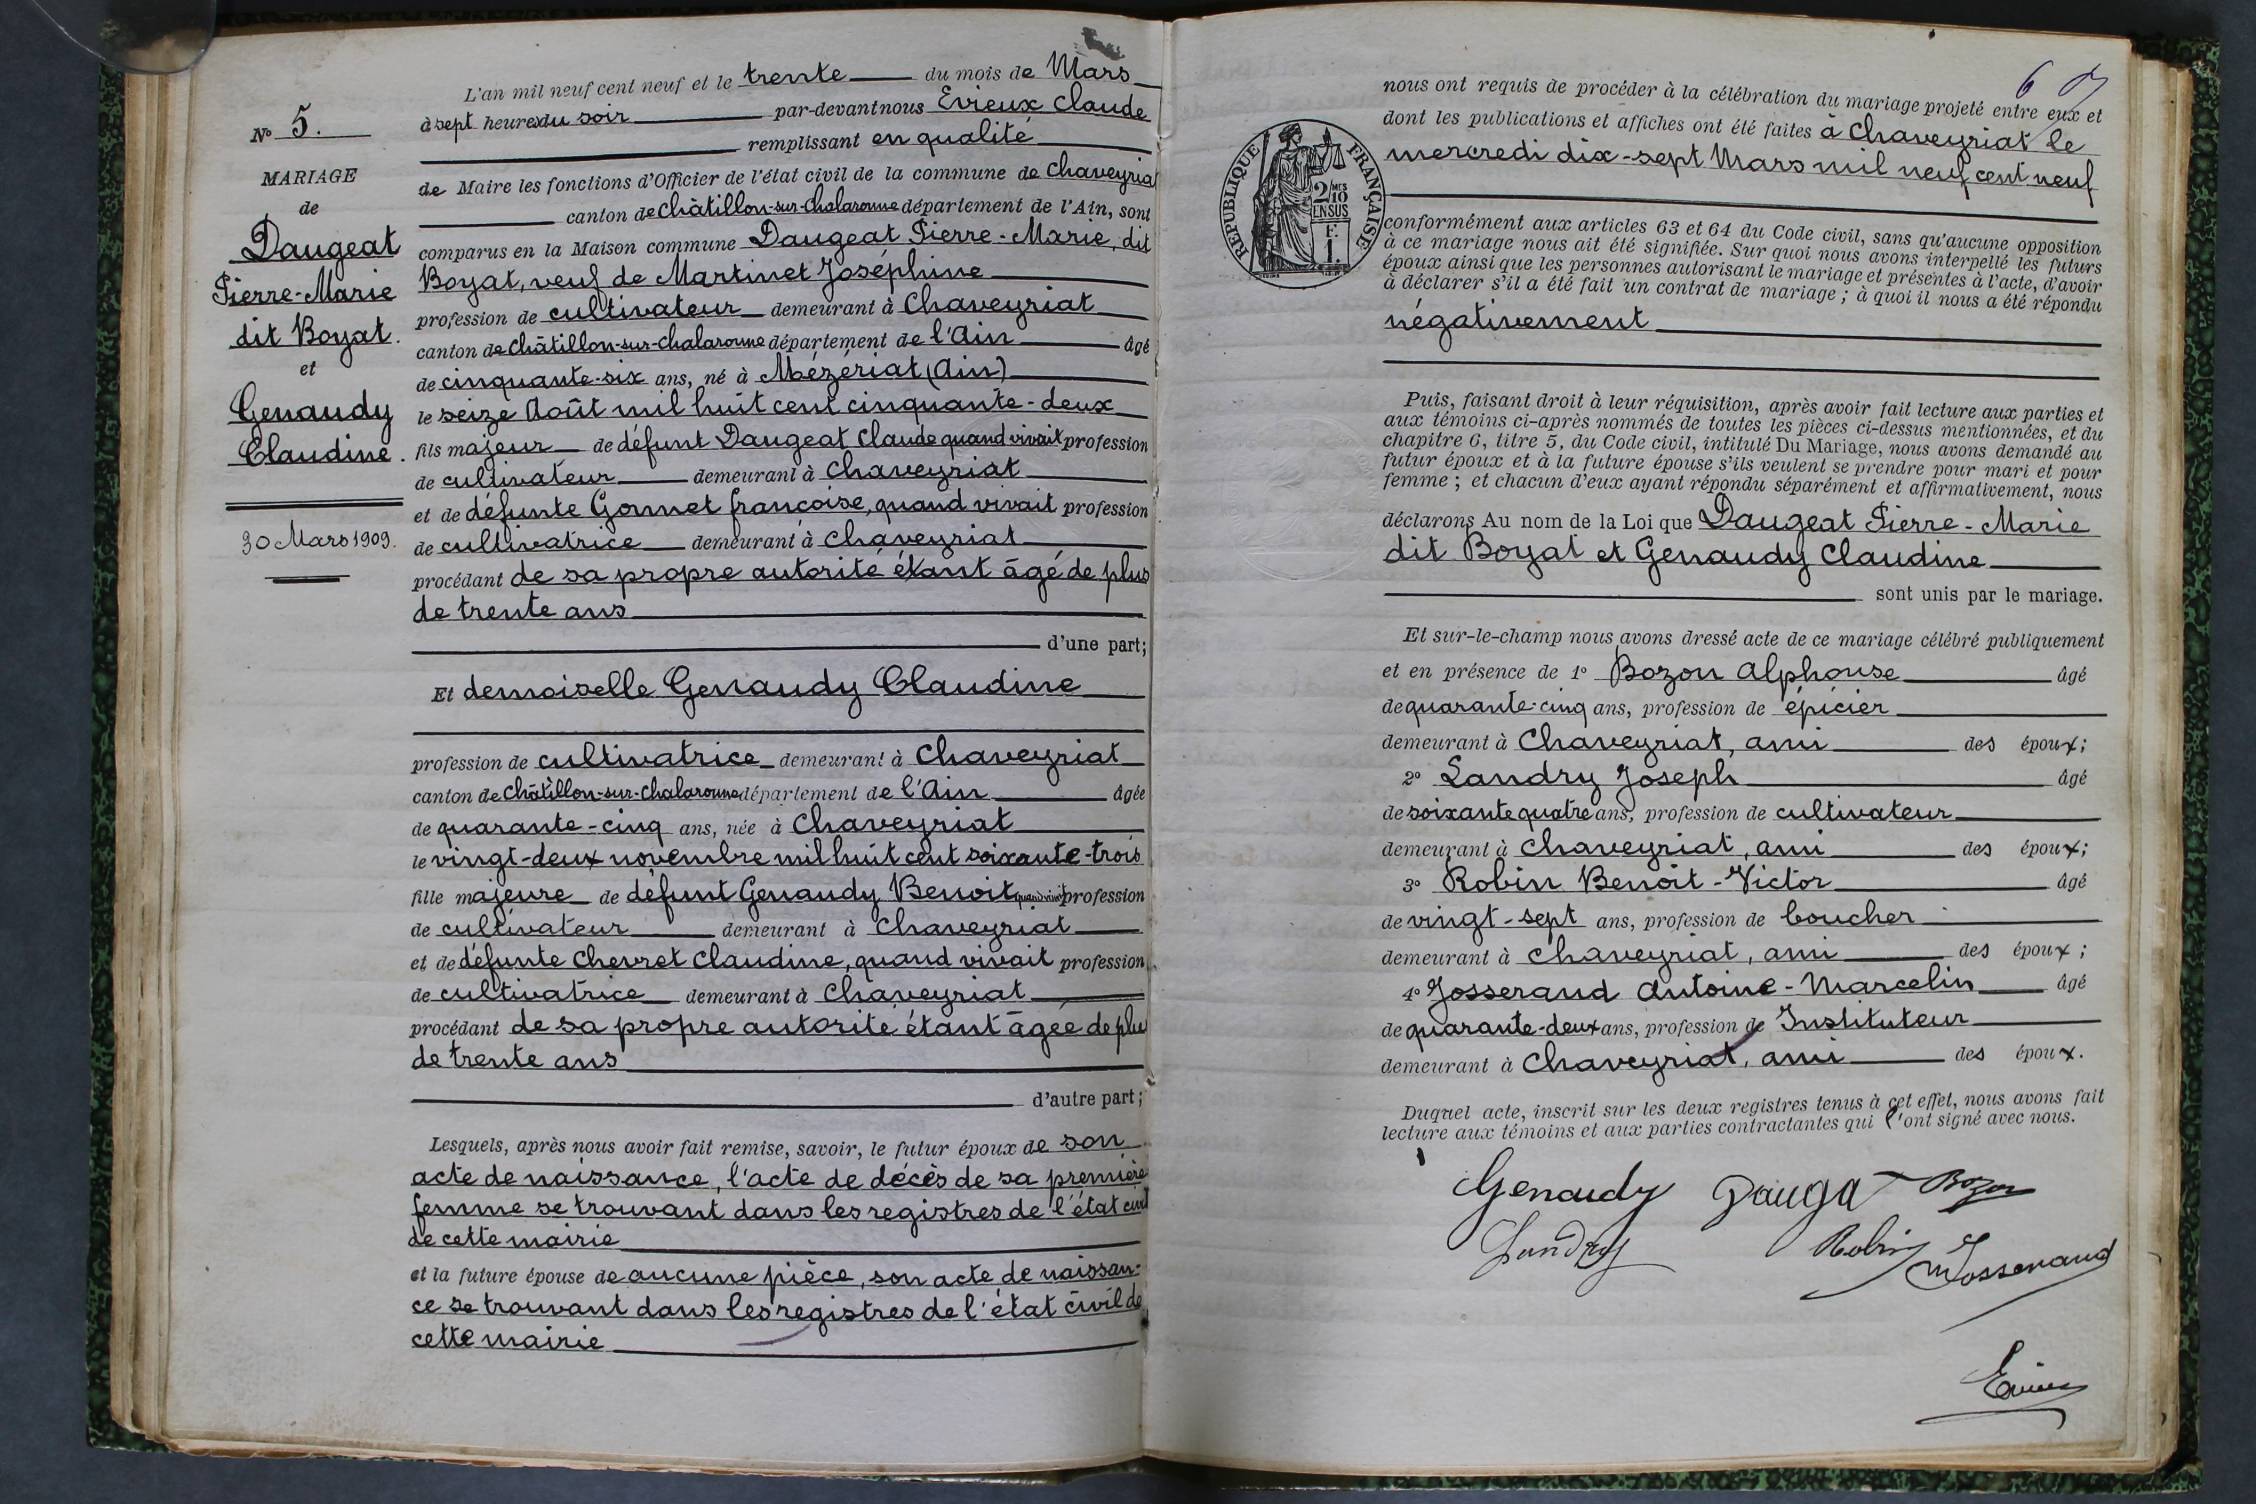 L'an mil neuf cent neuf et le trente du mois de Mars
à sept heures du soir par-devant nous Evieux Claude
remplissant en qualité
de Maire les fonctions d'Officier de l'état civil de la commune de Chaveyria
canton de Châtillon-sur-Chalaronne département de l'Ain, sont
comparus en la Maison commune Daugeat Pierre-Marie, dit
Boyat, veuf de Martinet Joséphine
profession de cultivateur demeurant à Chaveyriat
canton de Châtillon-sur-Chalaronne département de l'Ain âgé
de cinquante-six ans, né à Mézériat (Ain)
le seize Août mil huit cent cinquante-deux
fils majeur de défunt Daugeat Claude quand vivait profession
de cultivateur demeurant à Chaveyriat
et de défunte Gonnet françoise, quand vivait profession
de cultivatrice demeurant à Chaveyriat
procédant de sa propre autorité étant âgé de plus
de trente ans
d'une part;
Et demoiselle Genaudy Claudine
profession de cultivatrice demeurant à Chaveyriat
canton de Châtillon-sur-Chalaronne département de l'Ain âgée
de quarante-cinq ans, née à Chaveyriat
le vingt-deux novembre mil huit cent soixante-trois
fille majeure de défunt Genaudy Benoit quand vivait profession
de cultivateur demeurant à Chaveyriat
et de défunte Chevret Claudine, quand vivait profession
de cultivatrice demeurant à Chaveyriat
procédant de sa propre autorité étant âgée de plu
de trente ans
d'autre part;
Lesquels, après nous avoir fait remise, savoir, le futur époux de son
acte de naissance, l'acte de décès de sa première
femme se trouvant dans les registres de l'état civil
de cette mairie
et la future épouse de aucune pièce, son acte de naissan-
ce se trouvant dans les registres de l'état civil de
cette mairie
No 5.
MARIAGE
de
Daugeat
Pierre-Marie
dit Boyat.
et
Genaudy
Claudine.
30 Mars 1909.
6
nous ont requis de procéder à la célébration du mariage projeté entre eux et
dont les publications et affiches ont été faites à Chaveyriat le
mercredi dix-sept Mars mil neuf cent neuf
RÉPUBLIQUE FRANÇAISE
2/10
MES
EN SUS
F.
1.
conformément aux articles 63 et 64 du Code civil, sans qu'aucune opposition
à ce mariage nous ait été signifiée. Sur quoi nous avons interpellé les futurs
époux ainsi que les personnes autorisant le mariage et présentes à l'acte, d'avoir
à déclarer s'il a été fait un contrat de mariage; à quoi il nous a été répondu
négativement
Puis, faisant droit à leur réquisition, après avoir fait lecture aux parties et
aux témoins ci-après nommés de toutes les pièces ci-dessus mentionnées, et du
chapitre 6, titre 5, du Code civil, intitulé Du Mariage, nous avons demandé au
futur époux et à la future épouse s'ils veulent se prendre pour mari et pour
femme; et chacun d'eux ayant répondu séparément et affirmativement, nous
déclarons Au nom de la Loi que Daugeat Pierre-Marie
dit Boyat et Genaudy Claudine
sont unis par le mariage.
Et sur-le-champ nous avons dressé acte de ce mariage célébré publiquement
et en présence de 1° Bozon Alphonse âgé
de quarante-cinq ans, profession de épicier
demeurant à Chaveyriat, ami des époux;
2° Landry Joseph âgé
de soixante quatre ans, profession de cultivateur
demeurant à Chaveyriat, ami des époux;
3° Robin Benoît-Victor âgé
de vingt-sept ans, profession de boucher
demeurant à Chaveyriat, ami des époux;
4° Josserand Antoine-Marcelin âgé
de quarante-deux ans, profession de Instituteur
demeurant à Chaveyriat, ami des époux.
Duquel acte, inscrit sur les deux registres tenus à cet effet, nous avons fait
lecture aux témoins et aux parties contractantes qui l'ont signé avec nous.
Genaudy Daugat Bozon
Landry Robin Josserand
Evieux